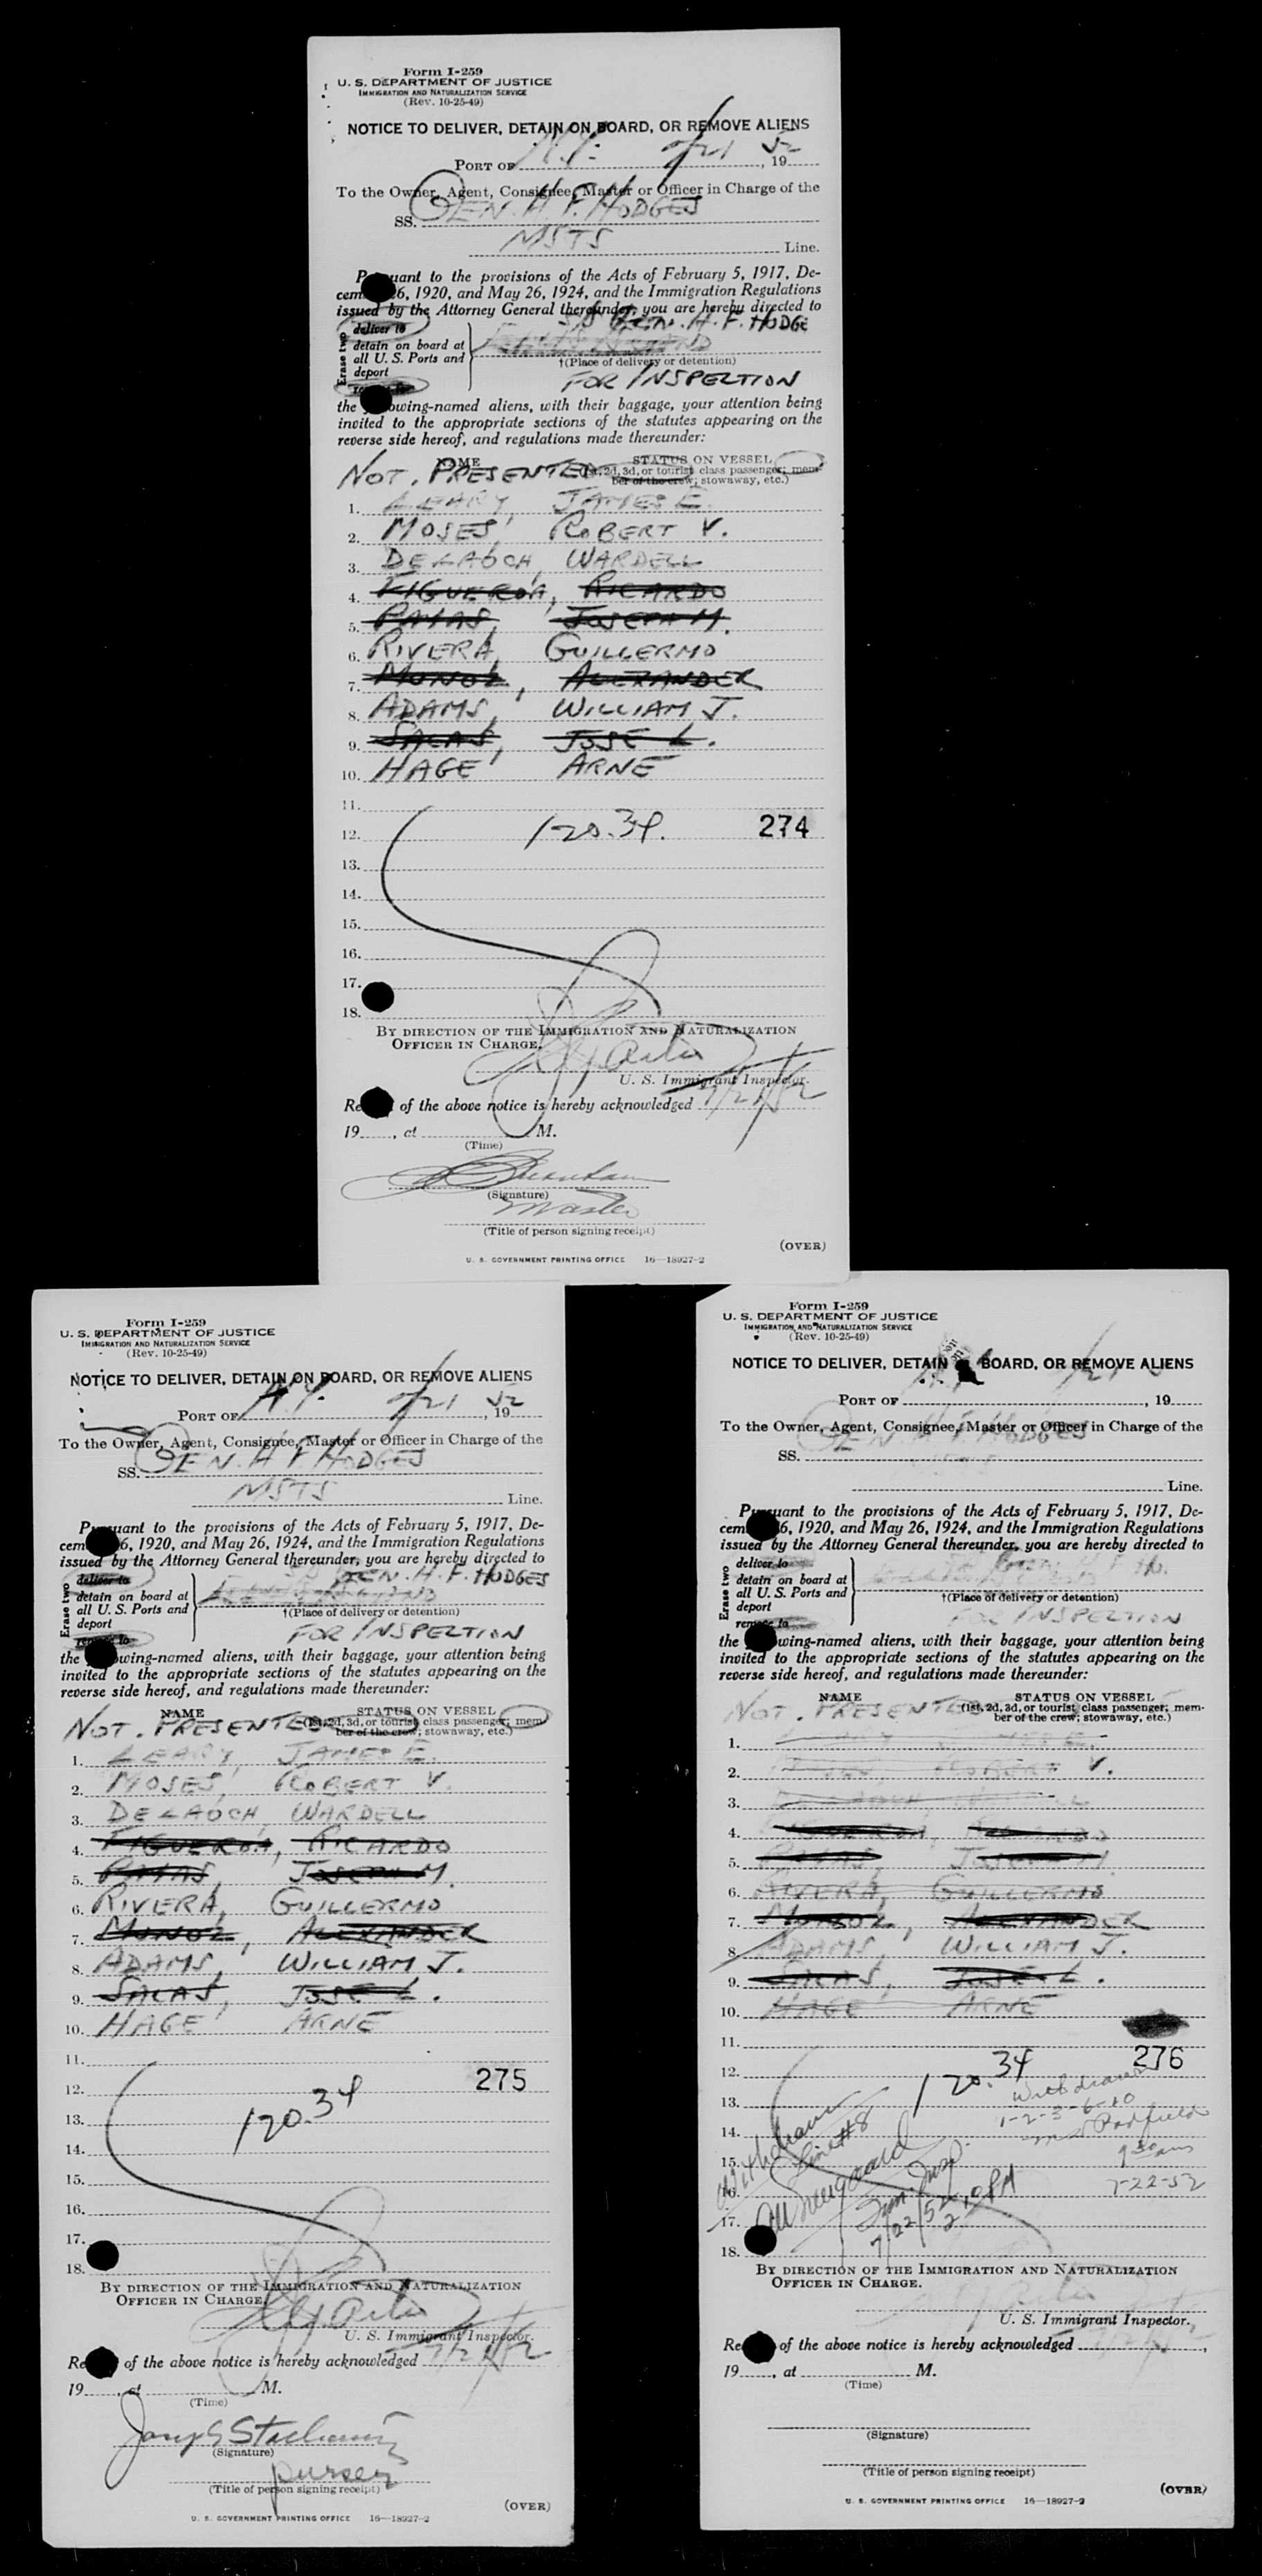 Form I-259
U. S. DEPARTMENT OF JUSTICE
IMMIGRATION AND NATURALIZATION SERVICE
(Rev. 10-25-49)
NOTICE TO DELIVER, DETAIN ON BOARD, OR REMOVE ALIENS
PORT OF N.Y. 7/21, 1952
To the Owner, Agent, Consignee, Master or Officer in Charge of the
SS. GEN. H. F. HODGES
MSTS Line.
Pursuant to the provisions of the Acts of February 5, 1917, De-
cem 6, 1920, and May 26, 1924, and the Immigration Regulations
issued by the Attorney General thereunder, you are hereby directed to
GEN. H. F. HODGE
Erase two
deliver to
detain on board at
all U. S. Ports and
deport
†(Place of delivery or detention)
FOR INSPECTION
the owing-named aliens, with their baggage, your attention being
invited to the appropriate sections of the statutes appearing on the
reverse side hereof, and regulations made thereunder:
NAME STATUS ON VESSEL
NOT. PRESENTED (1st, 2d, 3d, or tourist class passenger; mem-
ber of the crew; stowaway, etc.)
1. LEARY, JAMES E.
2. MOSES, ROBERT V.
3. DELAOCH, WARDELL
4. FIGUEROA, RICARDO
5. JOSEPH M.
6. RIVERA, GUILLERMO
7. MUNOZ, ALEXANDER
8. ADAMS, WILLIAM J.
9. SALAS, JOSE L.
10. HAGE, ARNE
11.
12. 120.34 274
13.
14.
15.
16.
17.
18.
BY DIRECTION OF THE IMMIGRATION AND NATURALIZATION
OFFICER IN CHARGE.
U. S. Immigrant Inspector.
Re of the above notice is hereby acknowledged 7/21/52
19, at M.
(Time)
(Signature)
Master
(Title of person signing receipt)
(OVER)
U. S. GOVERNMENT PRINTING OFFICE 16—18927-2
Form I-259
U. S. DEPARTMENT OF JUSTICE
IMMIGRATION AND NATURALIZATION SERVICE
(Rev. 10-25-49)
NOTICE TO DELIVER, DETAIN ON BOARD, OR REMOVE ALIENS
PORT OF N.Y. 7/21, 1952
To the Owner, Agent, Consignee, Master or Officer in Charge of the
SS. GEN. H F HODGES
MSTS Line.
Pursuant to the provisions of the Acts of February 5, 1917, De-
cem 6, 1920, and May 26, 1924, and the Immigration Regulations
issued by the Attorney General thereunder, you are hereby directed to
GEN. H. F. HODGES
Erase two
deliver to
detain on board at
all U. S. Ports and
deport
†(Place of delivery or detention)
FOR INSPECTION
the wing-named aliens, with their baggage, your attention being
invited to the appropriate sections of the statutes appearing on the
reverse side hereof, and regulations made thereunder:
NAME STATUS ON VESSEL
NOT. PRESENTED (1st, 2d, 3d, or tourist class passenger; mem-
ber of the crew; stowaway, etc.)
1. LEARY, JAMES E.
2. MOSES, ROBERT V.
3. DELAOCH, WARDELL
4. FIGUEROA, RICARDO
5. JOSEPH M.
6. RIVERA, GUILLERMO
7. MUNOZ, ALEXANDER
8. ADAMS, WILLIAM J.
9. SALAS, JOSE L.
10. HAGE, ARNE
11.
12. 275
13. 120.34
14.
15.
16.
17.
18.
BY DIRECTION OF THE IMMIGRATION AND NATURALIZATION
OFFICER IN CHARGE.
U. S. Immigrant Inspector.
Re of the above notice is hereby acknowledged 7/21/52
19, at M.
(Time)
Joseph
(Signature)
purser
(Title of person signing receipt)
(OVER)
U. S. GOVERNMENT PRINTING OFFICE 16—18927-2
Form I-259
U. S. DEPARTMENT OF JUSTICE
IMMIGRATION AND NATURALIZATION SERVICE
(Rev. 10-25-49)
NOTICE TO DELIVER, DETAIN BOARD, OR REMOVE ALIENS
PORT OF , 19
To the Owner, Agent, Consignee, Master or Officer in Charge of the
SS. GEN H F HODGES
MSTS Line.
Pursuant to the provisions of the Acts of February 5, 1917, De-
cem 6, 1920, and May 26, 1924, and the Immigration Regulations
issued by the Attorney General thereunder, you are hereby directed to
Erase two
deliver to
detain on board at
all U. S. Ports and
deport
remove to
†(Place of delivery or detention)
FOR INSPECTION
the wing-named aliens, with their baggage, your attention being
invited to the appropriate sections of the statutes appearing on the
reverse side hereof, and regulations made thereunder:
NAME STATUS ON VESSEL
NOT. PRESENTED (1st, 2d, 3d, or tourist class passenger; mem-
ber of the crew; stowaway, etc.)
1. E.
2. ROBERT V.
3.
4.
5. JOSEPH M.
6. RIVERA, GUILLERMO
7. MUNOZ, ALEXANDER
8. ADAMS, WILLIAM J.
9. SALAS, JOSE L.
10. HAGE, ARNE
11.
12. 120.34 276
13. Withdrawn
1-2-3-6-10
14. Withdrawn
Line #8
15. 9 30 am
16. Imm. Insp. 7-22-52
17. 7/22/52
18.
BY DIRECTION OF THE IMMIGRATION AND NATURALIZATION
OFFICER IN CHARGE.
U. S. Immigrant Inspector.
Re of the above notice is hereby acknowledged
19, at M.
(Time)
(Signature)
(Title of person signing receipt)
(OVER)
U. S. GOVERNMENT PRINTING OFFICE 16—18927-2